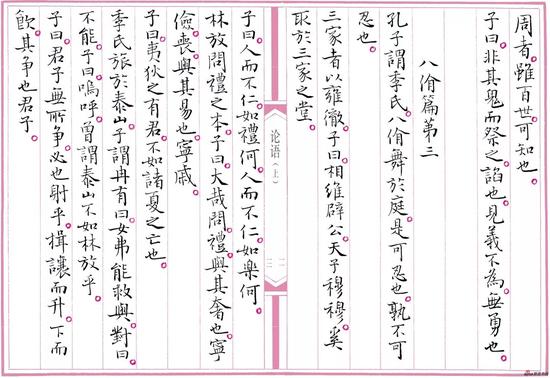 周者雖百世可知也
子曰非其鬼而祭之諂也見義不為無勇也
八佾篇第三
孔子謂季氏八佾舞於庭是可忍也孰不可
忍也
三家者以雍徹子曰相維辟公天子穆穆奚
取於三家之堂
论语(上)
三二
子曰人而不仁如禮何人而不仁如樂何
林放問禮之本子曰大哉問禮與其奢也寧
儉喪與其易也寧戚
子曰夷狄之有君不如諸夏之亡也
季氏旅於泰山子謂冉有曰女弗能救與對曰
不能子曰嗚呼曾謂泰山不如林放乎
子曰君子無所爭必也射乎揖讓而升下而
飲其争也君子